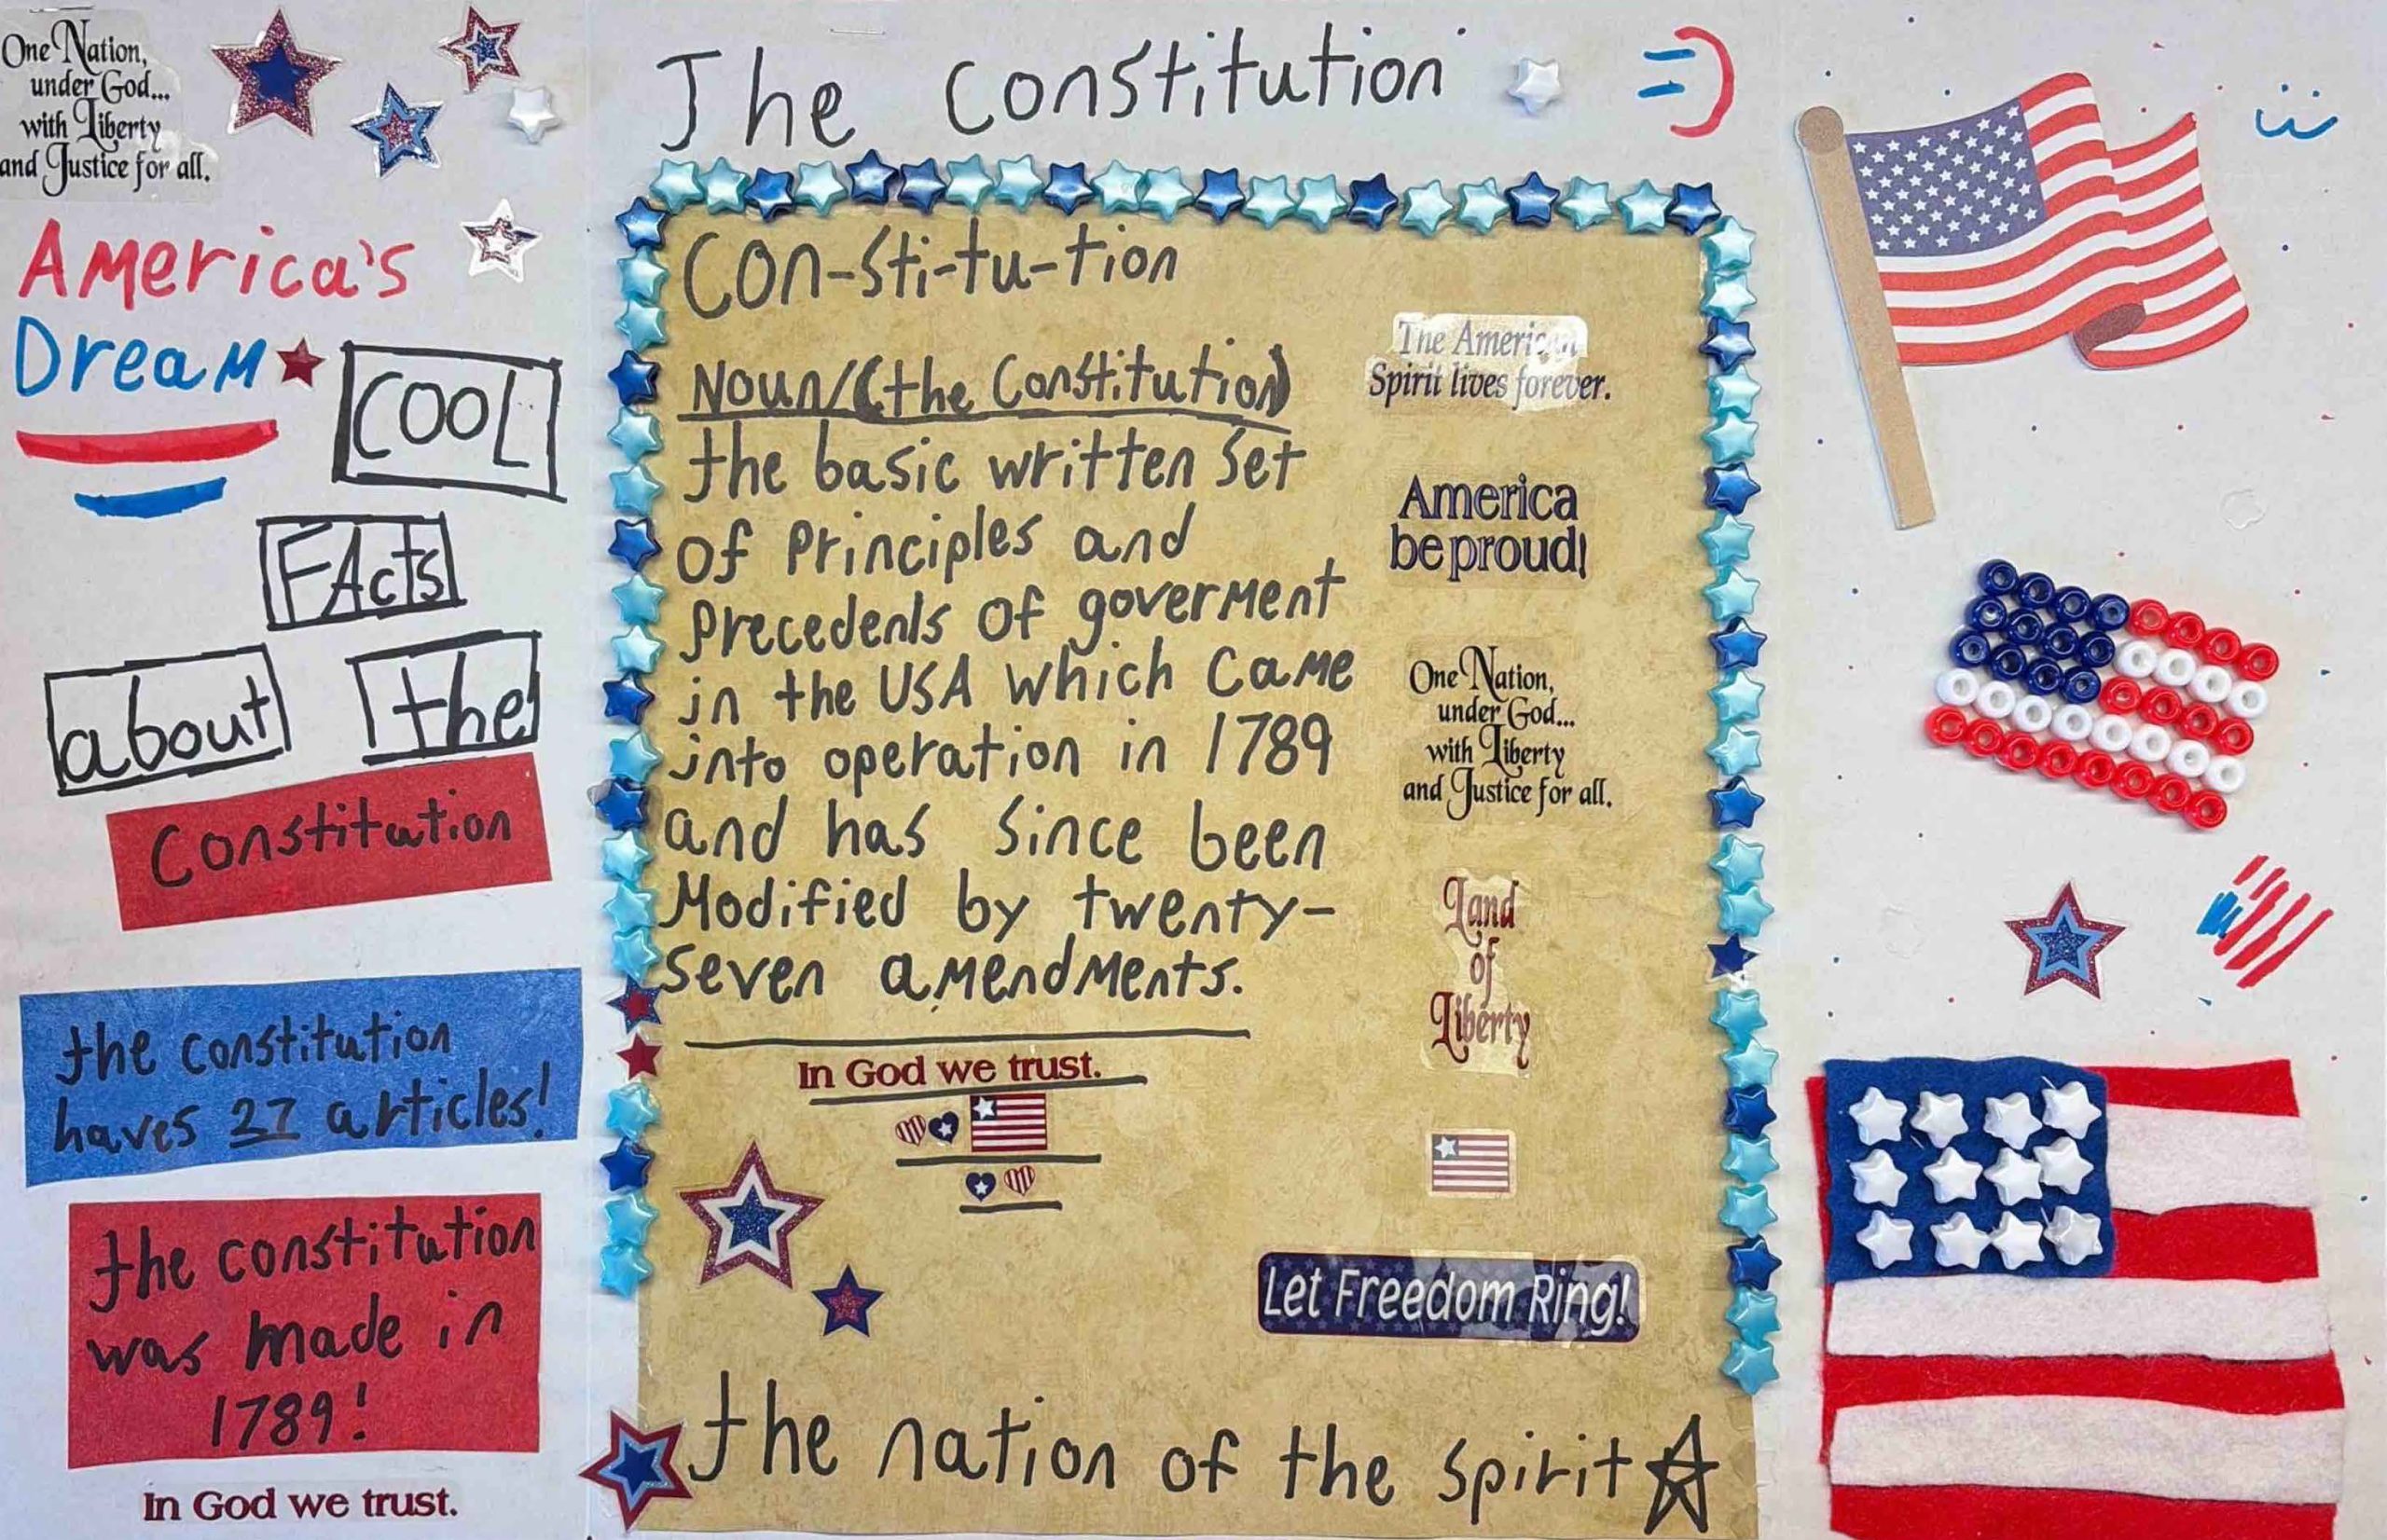 One Nation,
under God...
with Liberty
and Justice for all.
America's
Dream
COOL
FActs
about the
Constitution
the constitution
haves 27 articles!
the constitution
was made in
1789!
In God we trust.
The Constitution =)
CON-Sti-tu-tion
Noun/(the Constitution)
the basic written Set
of Principles and
Precedents of goverment
in the USA which Came
into operation in 1789
and has Since been
Modified by twenty-
Seven amendments.
In God we trust.
The American
Spirit lives forever.
America
be proud!
One Nation,
under God...
with Liberty
and Justice for all.
Land
of
Liberty
Let Freedom Ring!
the nation of the Spirit